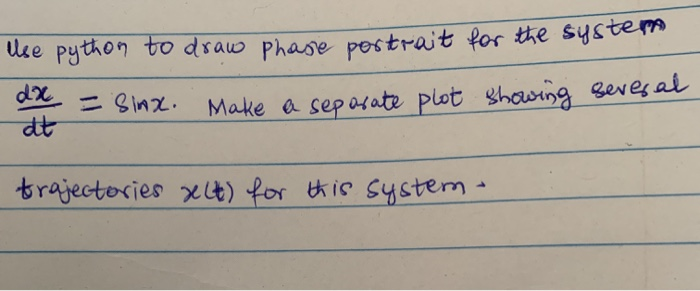 Use python to draw phase portrait for the system
dx/dt = Sinx. Make a separate plot showing several
trajectories x(t) for this system.